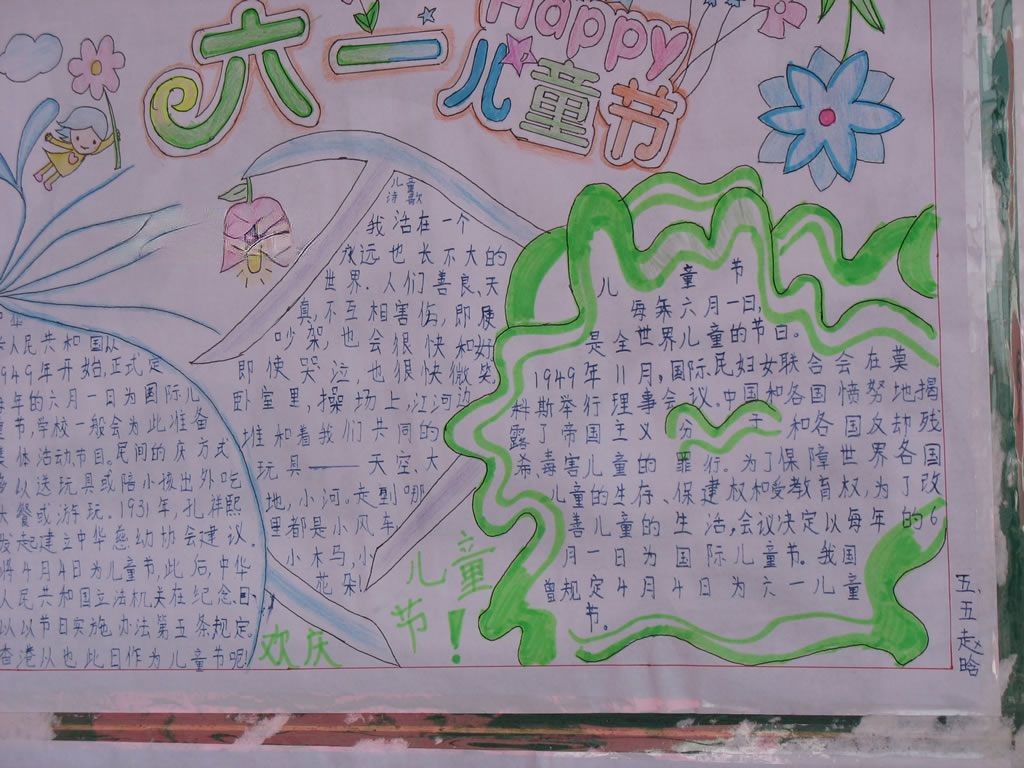 六一
Happy
儿童节
儿童
诗歌
我活在一个
永远也长不大的
世界.人们善良、天
真,不互相害伤,即使
吵架,也会很快和好
即使哭泣,也很快微笑
卧室里,操场上,江河边
堆和着我们共同的
玩具——天空、大
地,小河。走到哪
里都是小风车
小木马,小
花朵!
儿童节
每年六月一日,
是全世界儿童的节日。
1949年11月,国际民妇女联合会在莫
科斯举行理事会议.中国和各国愤努地揭
露了帝国主义 和各国反却残
杀、毒害儿童的罪行。为了保障世界各国
儿童的生存、保建权和受教育权,为了改
善儿童的生活,会议决定以每年的6
月一日为国际儿童节。我国
曾规定4月4日为六一儿童
节。
人民共和国从
949年开始,正式定
年的六月一日为国际儿
节,学校一般会为此准备
集体活动节目.民间的庆方式
以送玩具或陪小孩出外吃
大餐或游玩.1931年,孔祥熙
发起建立中华慈幼协会建议
将4月4日为儿童节,此后,中华
人民共和国立法机关在纪念日
以以节日实施办法第五条规定.
香港以也此日作为儿童节呢!
欢庆
儿童
节!
五.五赵晗